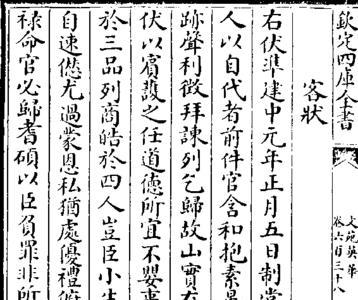 欽定四庫全書
文苑英華
卷六百三十八
客狀
右伏準建中元年正月五日制常
人以自代者前件官含和抱素
跡聲利徴拜諫列乞歸故山實
伏以賔護之任道德所宜不嬰事
於三品列商皓於四人豈臣小生
自速愆尤過蒙恩私猶處優禮
禄命官必歸耆碩以臣負罪非所